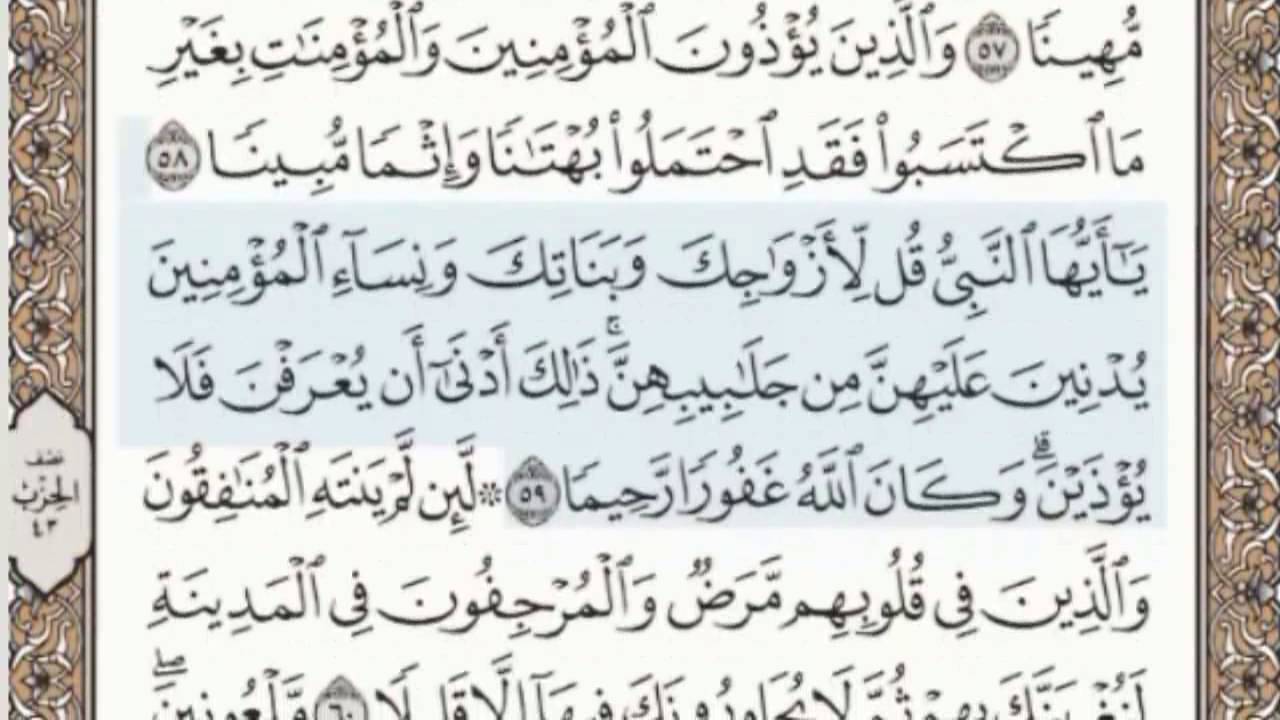 مُّهِينٗا ٥٧ وَٱلَّذِينَ يُؤۡذُونَ ٱلۡمُؤۡمِنِينَ وَٱلۡمُؤۡمِنَٰتِ بِغَيۡرِ
مَا ٱكۡتَسَبُواْ فَقَدِ ٱحۡتَمَلُواْ بُهۡتَٰنٗا وَإِثۡمٗا مُّبِينٗا ٥٨
يَٰٓأَيُّهَا ٱلنَّبِيُّ قُل لِّأَزۡوَٰجِكَ وَبَنَاتِكَ وَنِسَآءِ ٱلۡمُؤۡمِنِينَ
يُدۡنِينَ عَلَيۡهِنَّ مِن جَلَٰبِيبِهِنَّۚ ذَٰلِكَ أَدۡنَىٰٓ أَن يُعۡرَفۡنَ فَلَا
يُؤۡذَيۡنَۗ وَكَانَ ٱللَّهُ غَفُورٗا رَّحِيمٗا ٥٩ ۞ لَّئِن لَّمۡ يَنتَهِ ٱلۡمُنَٰفِقُونَ
وَٱلَّذِينَ فِي قُلُوبِهِم مَّرَضٞ وَٱلۡمُرۡجِفُونَ فِي ٱلۡمَدِينَةِ
لَنُغۡرِيَنَّكَ بِهِمۡ ثُمَّ لَا يُجَاوِرُونَكَ فِيهَآ إِلَّا قَلِيلٗا ٦٠ مَّلۡعُونِينَۖ
نصف
الحزب
٤٣